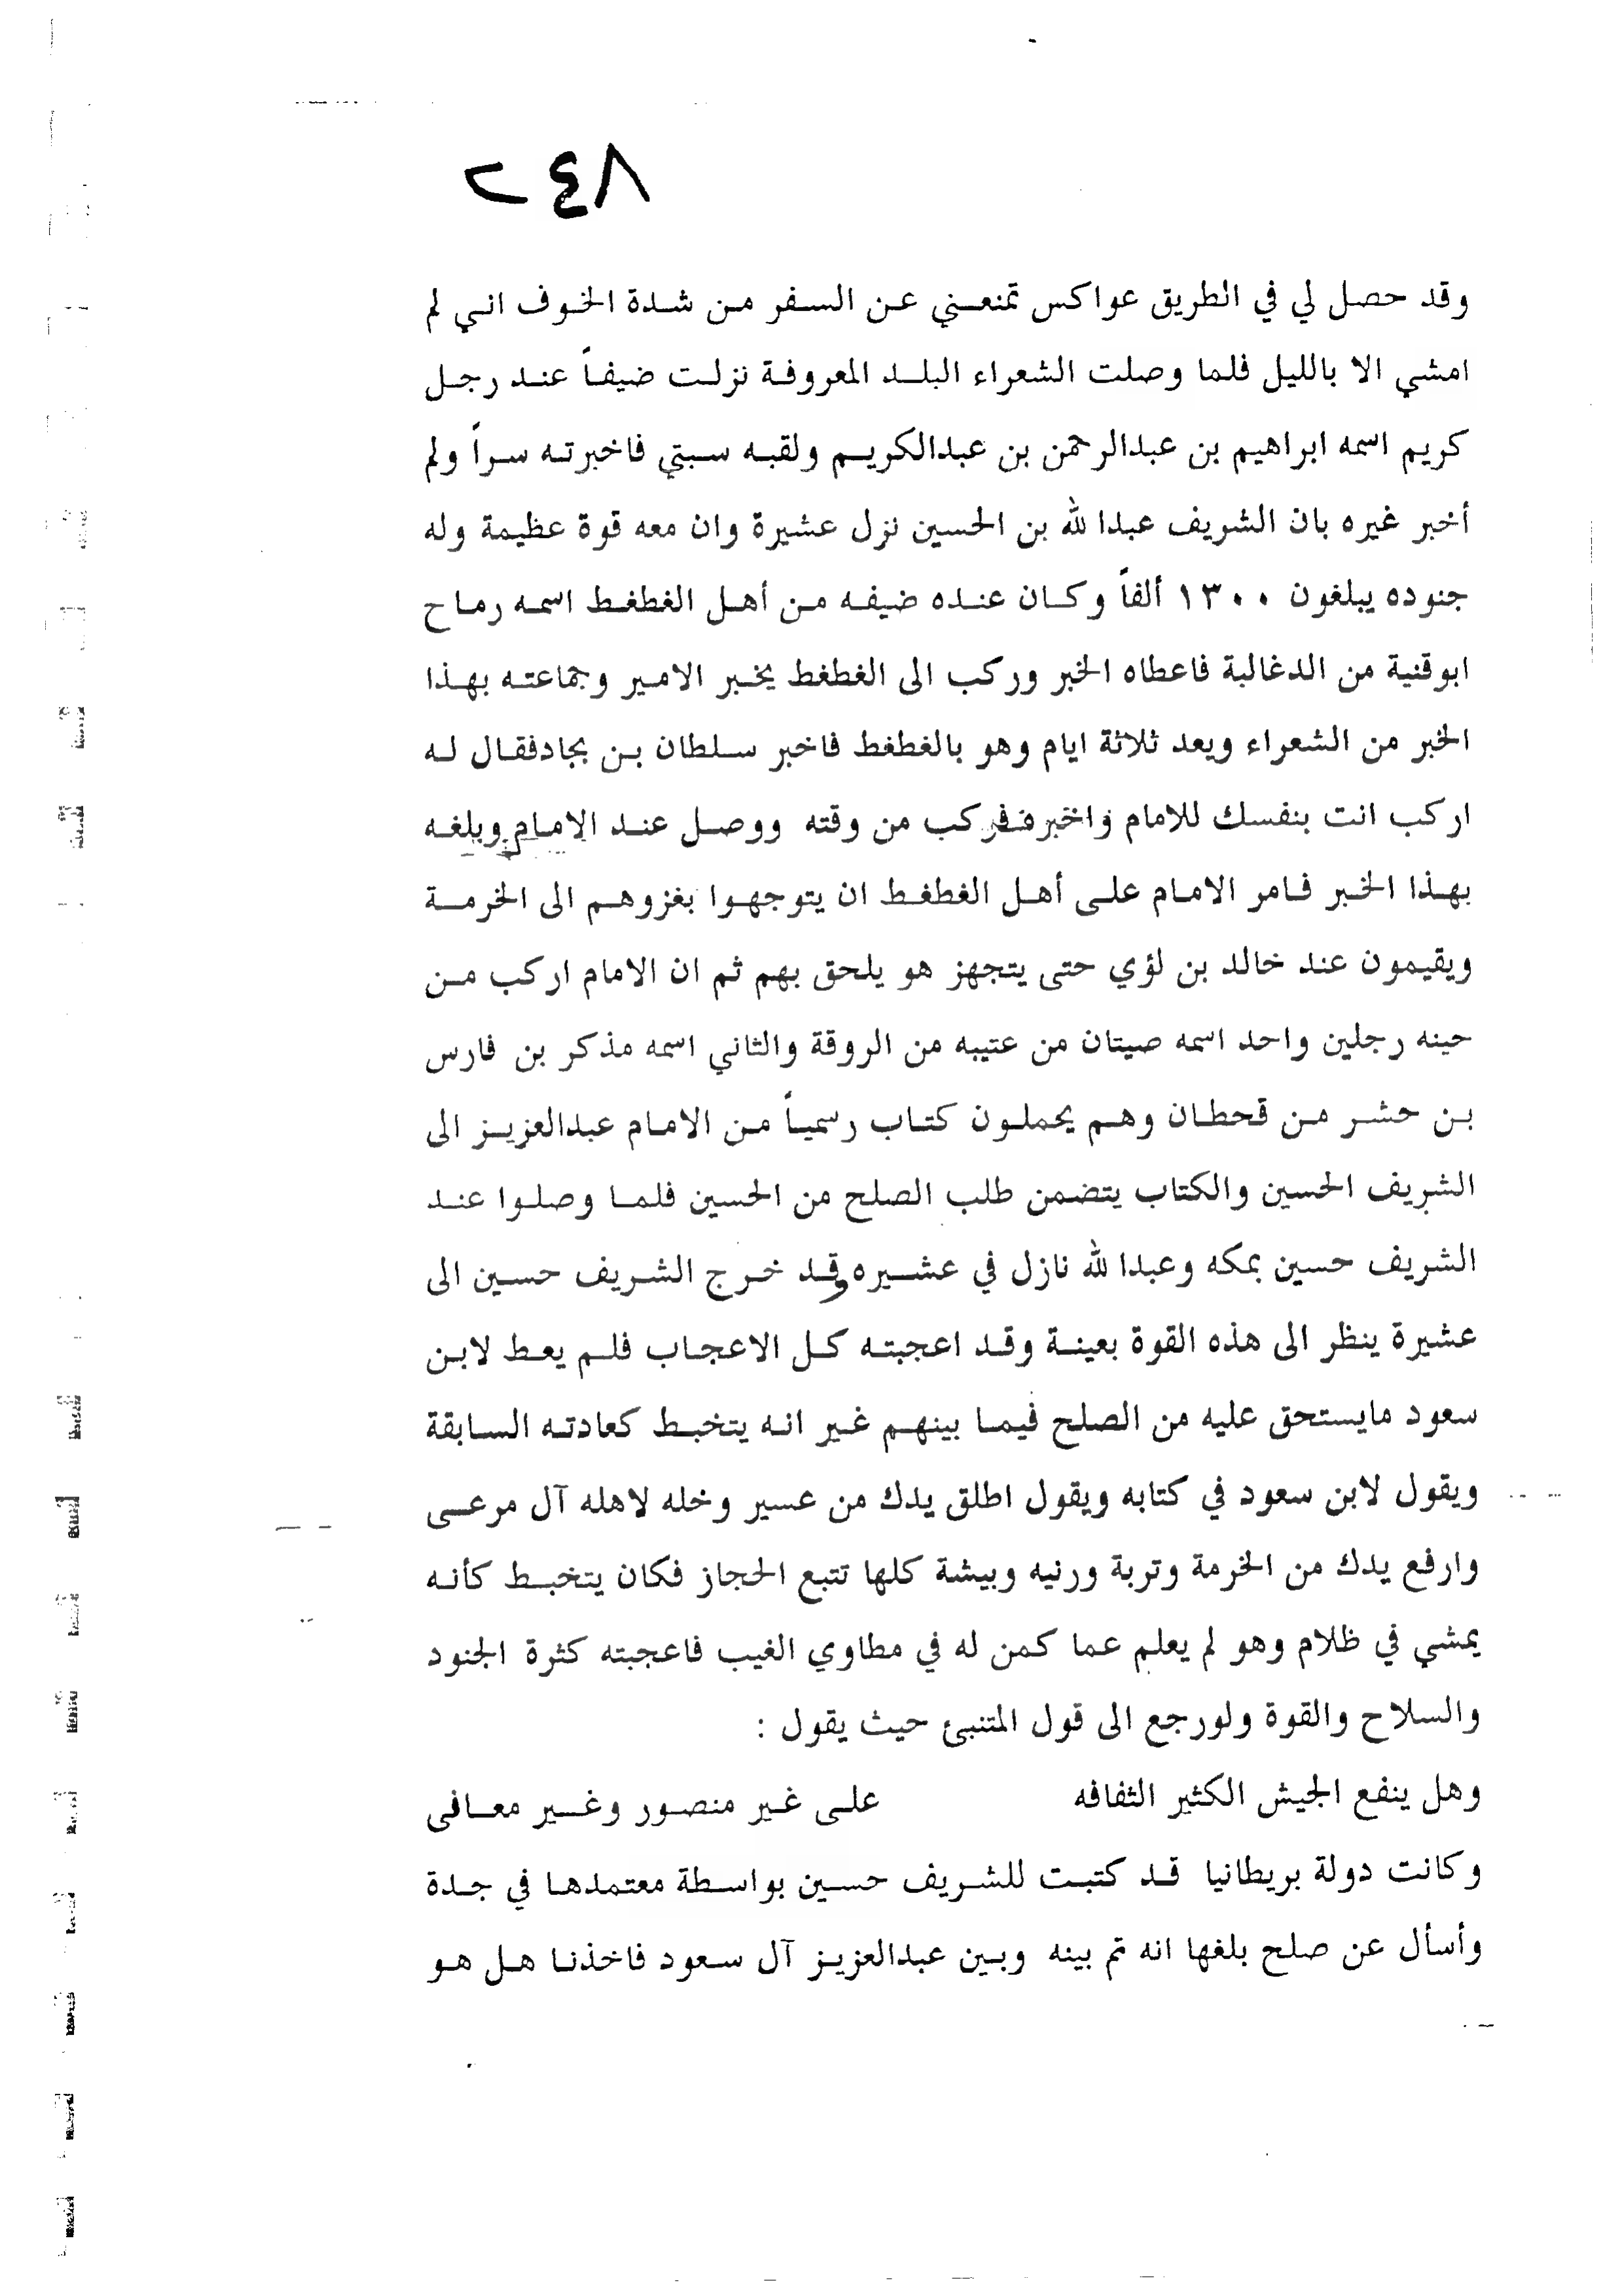 ٢٤٨
وقد حصل لي في الطريق عواكس تمنعني عن السفر من شدة الخوف اني لم
امشي الا بالليل فلما وصلت الشعراء البلد المعروفة نزلت ضيفاً عند رجل
كريم اسمه ابراهيم بن عبدالرحمن بن عبدالكريم ولقبه سبتي فاخبرته سراً ولم
أخبر غيره بان الشريف عبدا لله بن الحسين نزل عشيرة وان معه قوة عظيمة وله
جنوده يبلغون ١٣٠٠ ألفاً وكان عنده ضيفه من أهل الغطغط اسمه رماح
ابوقنية من الدغالبة فاعطاه الخبر وركب الى الغطغط يخبر الامير وجماعته بهذا
الخبر من الشعراء وبعد ثلاثة ايام وهو بالغطغط فاخبر سلطان بن بجادفقال له
اركب انت بنفسك للامام واخبره فركب من وقته ووصل عند الامام وبلغه
بهذا الخبر فامر الامام على أهل الغطغط ان يتوجهوا بغزوهم الى الخرمة
ويقيمون عند خالد بن لؤي حتى يتجهز هو يلحق بهم ثم ان الامام اركب من
حينه رجلين واحد اسمه صيتان من عتيبه من الروقة والثاني اسمه مذكر بن فارس
بن حشر من قحطان وهم يحملون كتاب رسمياً من الامام عبدالعزيز الى
الشريف الحسين والكتاب يتضمن طلب الصلح من الحسين فلما وصلوا عند
الشريف حسين بمكه وعبدا لله نازل في عشيره وقد خرج الشريف حسين الى
عشيرة ينظر الى هذه القوة بعينة وقد اعجبته كل الاعجاب فلم يعط لابن
سعود مايستحق عليه من الصلح فيما بينهم غير انه يتخبط كعادته السابقة
ويقول لابن سعود في كتابه ويقول اطلق يدك من عسير وخله لاهله آل مرعى
وارفع يدك من الخرمة وتربة ورنيه وبيشة كلها تتبع الحجاز فكان يتخبط كأنه
يمشي في ظلام وهو لم يعلم عما كمن له في مطاوي الغيب فاعجبته كثرة الجنود
والسلاح والقوة ولورجع الى قول المتنبئ حيث يقول :
وهل ينفع الجيش الكثير الثفافه على غير منصور وغير معافى
وكانت دولة بريطانيا قد كتبت للشريف حسين بواسطة معتمدها في جدة
وأسأل عن صلح بلغها انه تم بينه وبين عبدالعزيز آل سعود فاخذنا هل هو